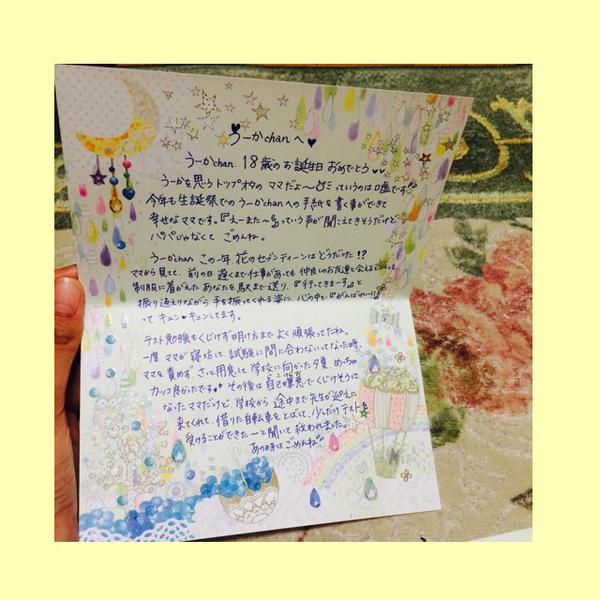 うーかchanへ♥
うーかchan 18歳のお誕生日おめでとう♥♥
うーかを思うトップオタのママだよ〜っていうのは嘘です
今年も生誕祭でのうーかchanへの手紙を書く事ができて
幸せなママです。『えーまた〜』っていう声が聞こえてきそうだけど
パパじゃなくて ごめんね。
うーかchan この一年 花のセブンティーンはどうだった!?
ママから見てて、前の日 遅くまで仕事があっても 仲良しのお友達と会えるといって
制服に着がえた あなたを駅まで送り、『行ってきまーす』と
振り返りながら 手を振ってくれる姿に 心の中で『がんばれー!!』
って キュン♥キュンしてます。
テスト勉強もくじけず明け方まで よく頑張ってたね。
一度 ママが寝坊して 試験に間に合わないってなった時、
ママを責めず さっと用意して 学校に向かった夕夏、めっちゃ
カッコ良かったです。その後は自己嫌悪でくじけそうに
なったママだけど、学校から 途中まで先生が迎えに
来てくれて、借りた自転車をとばして、少しだけテストを
受けることができたーと聞いて 救われました。
あの時は ごめんね